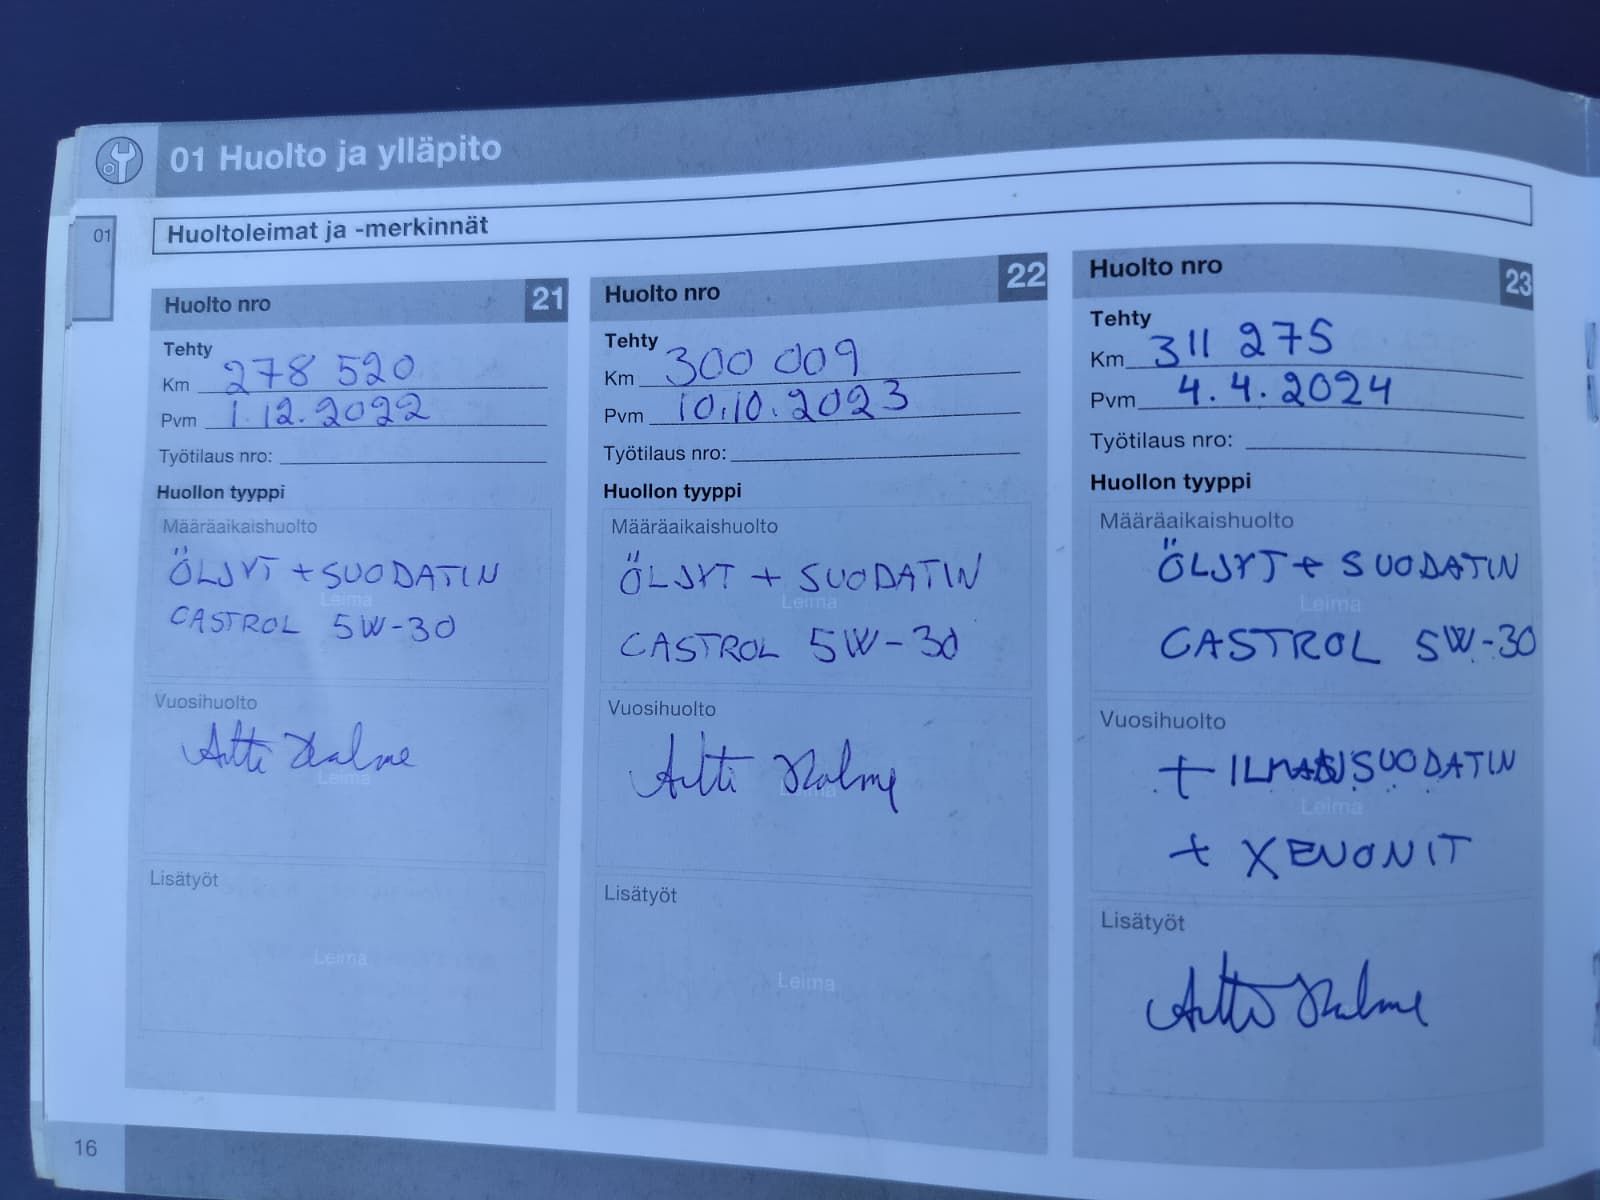 01 Huolto ja ylläpito
Huoltoleimat ja -merkinnät
01
Huolto nro 21
Tehty
Km 278 520
Pvm 1.12.2022
Työtilaus nro:
Huollon tyyppi
Määräaikaishuolto
ÖLJYT + SUODATIN
Leima
CASTROL 5W-30
Vuosihuolto
Leima
Lisätyöt
Leima
Huolto nro 22
Tehty
Km 300 009
Pvm 10.10.2023
Työtilaus nro:
Huollon tyyppi
Määräaikaishuolto
ÖLJYT + SUODATIN
Leima
CASTROL 5W-30
Vuosihuolto
Leima
Lisätyöt
Leima
Huolto nro 23
Tehty
Km 311 275
Pvm 4.4.2024
Työtilaus nro:
Huollon tyyppi
Määräaikaishuolto
ÖLJYT + SUODATIN
Leima
CASTROL 5W-30
Vuosihuolto
+ ILMANSUODATIN
Leima
+ XENONIT
Lisätyöt
16